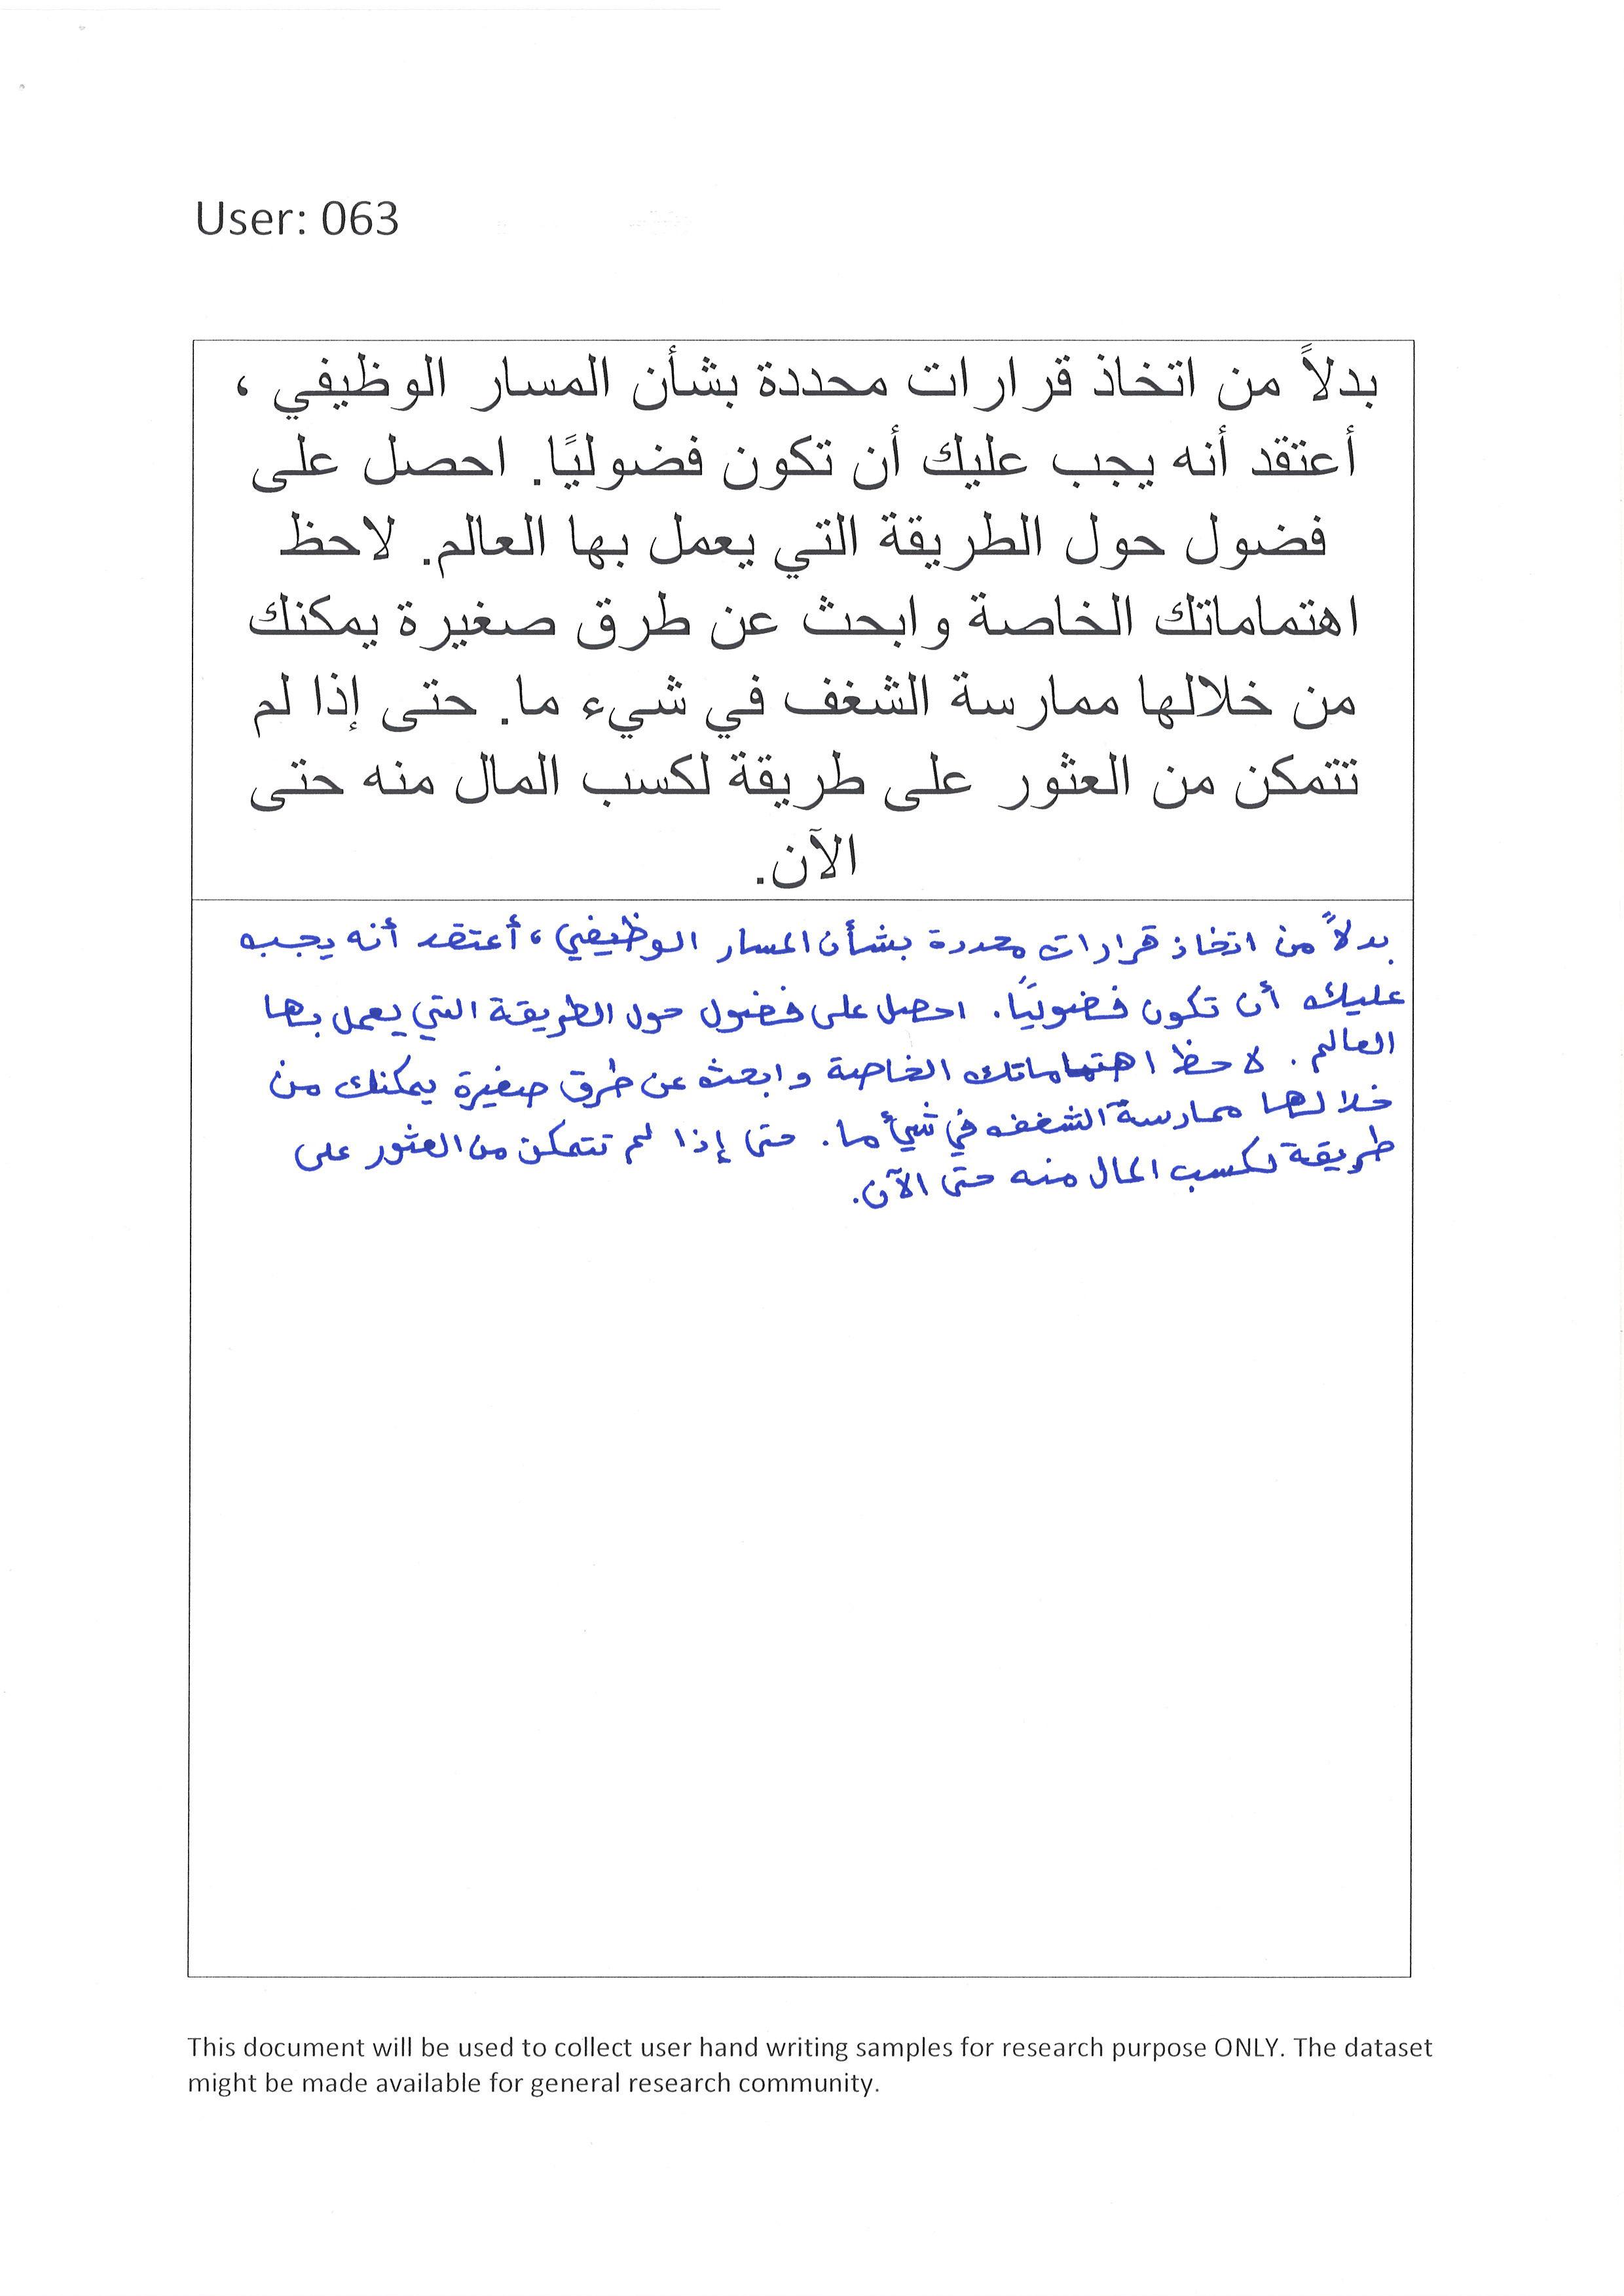 User: 063
بدلاً من اتخاذ قرارات محددة بشأن المسار الوظيفي ،
أعتقد أنه يجب عليك أن تكون فضوليًا. احصل على
فضول حول الطريقة التي يعمل بها العالم. لاحظ
اهتماماتك الخاصة وابحث عن طرق صغيرة يمكنك
من خلالها ممارسة الشغف في شيء ما. حتى إذا لم
تتمكن من العثور على طريقة لكسب المال منه حتى
الآن.
بدلاً من اتخاذ قرارات محددة بشأن المسار الوظيفي ، أعتقد أنه يجب
عليك أن تكون فضوليًا. احصل على فضول حول الطريقة التي يعمل بها
العالم. لاحظ اهتماماتك الخاصة وابحث عن طرق صغيرة يمكنك من
خلالها ممارسة الشغف في شيئ ما. حتى إذا لم تتمكن من العثور على
طريقة لكسب المال منه حتى الآن.
This document will be used to collect user hand writing samples for research purpose ONLY. The dataset
might be made available for general research community.